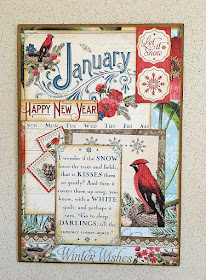 January
Let it
Snow
HAPPY NEW YEAR
SUN MON TUE WED THU FRI SAT
I wonder if the SNOW
loves the trees and fields,
that it KISSES them
so gently? And then it
covers them up snug, you
know, with a WHITE
quilt; and perhaps it
says, "Go to sleep,
DARLINGS, till the
summer comes again."
Winter Wishes